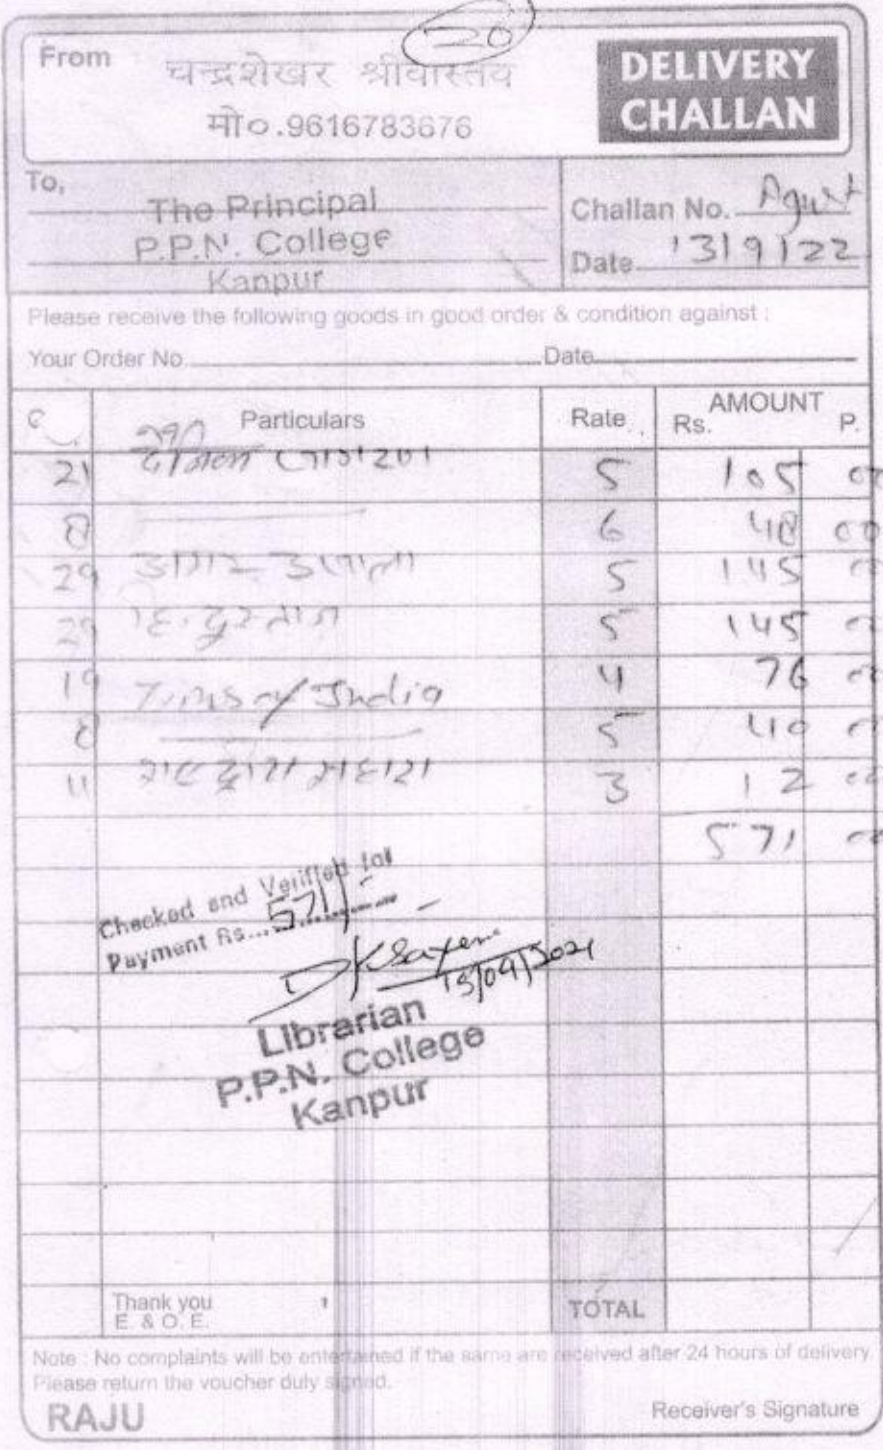 20
From
चन्द्रशेखर श्रीवास्तव
मो०.9616783676
DELIVERY
CHALLAN
To,
The Principal
P.P.N. College
Kanpur
Challan No. Agust
Date 13/9/22
Please receive the following goods in good order & condition against :
Your Order No. Date
Particulars Rate AMOUNT
Rs. P.
21 दैनिक जागरण 5 105 00
8 6 48 00
29 अमर उजाला 5 145 00
29 हिन्दुस्तान 5 145 00
19 Times of India 4 76 00
8 5 40 00
11 3 12 00
571 00
Checked and Verified for
Payment Rs... 571/-
Librarian
P.P.N. College
Kanpur
Thank you
E. & O. E.
TOTAL
Note : No complaints will be entertained if the same are received after 24 hours of delivery.
Please return the voucher duly signed.
RAJU
Receiver's Signature